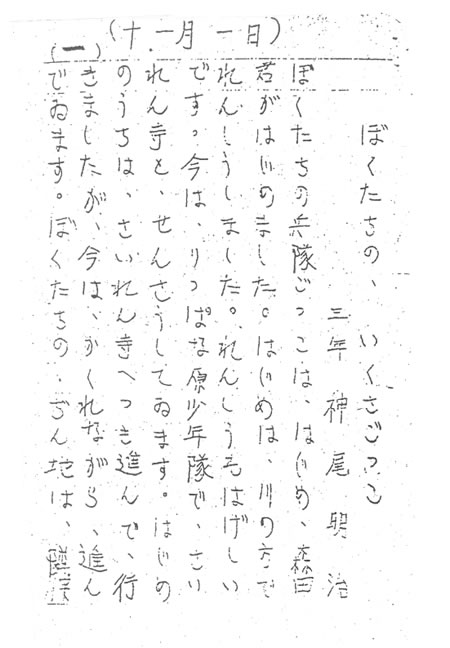 (十一月一日)
(一)
ぼくたちの、いくさごつこ
三年 神尾明治
ぼくたちの兵隊ごつこは、はじめ、森田
君がはじめました。はじめは、川の方で
れんしうしました。れんしうもはげしい
です。今は、りつぱな原少年隊で、さい
れん寺と、せんさうしてゐます。はじめ
のうちは、さいれん寺へつき進んで、行
きましたが、今は、かくれながら、進ん
でゐます。ぼくたちの、ぢん地は、